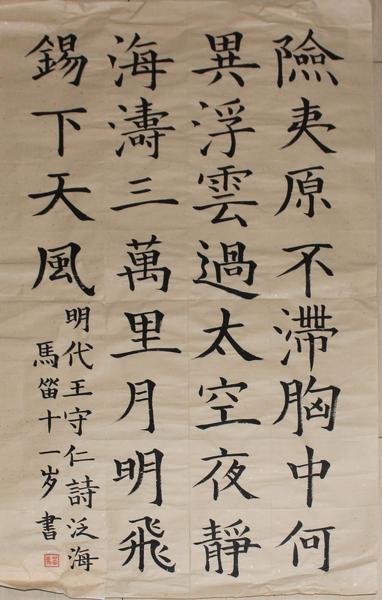 險夷原不滯胸中何
異浮雲過太空夜靜
海濤三萬里月明飛
錫下天風
明代王守仁詩泛海
馬笛十一岁書